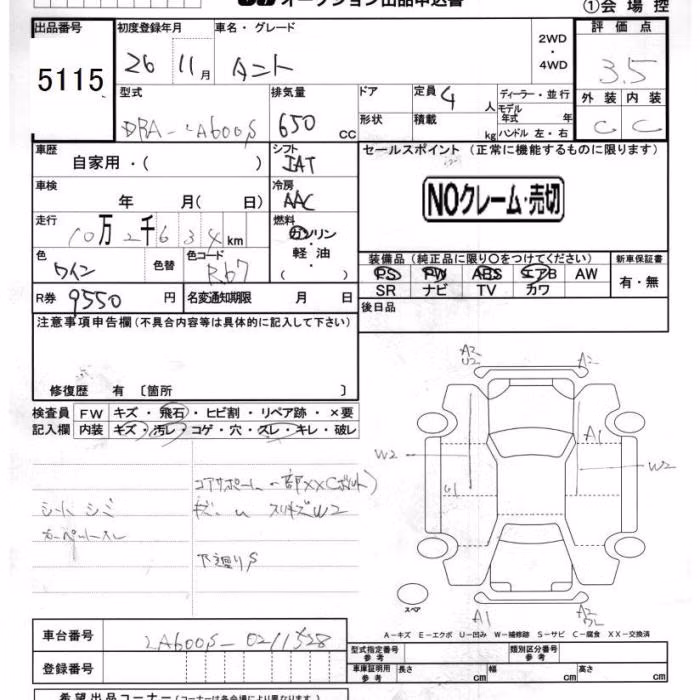 オークション出品申込書
①会場控
出品番号 初度登録年月 車名・グレード 2WD ・ 4WD 評価点
5115 26 11月 タント 3.5
型式 排気量 ドア 定員 4 人 ディーラー・並行
DBA-LA600S 650 cc 形状 積載 kg モデル年式 年 ハンドル 左・右
外装 内装
C C
車歴 自家用・( ) シフト IAT
セールスポイント (正常に機能するものに限ります)
車検 年 月( 日) 冷房 AAC
NOクレーム・売切
走行 10万2千634km 燃料 ガソリン・軽油・( )
色 ワイン 色替 色コード R67
装備品 (純正品に限り○をつけてください) 新車保証書
PS PW ABS エアB AW 有・無
SR ナビ TV カワ
R券 9550円 名変通知期限 月 日
後日品
注意事項申告欄 (不具合内容等は具体的に記入して下さい)
修復歴 有 〔箇所 〕
検査員 FW キズ・飛石・ヒビ割・リペア跡・×要
記入欄 内装 キズ・汚レ・コゲ・穴・スレ・キレ・破レ
コアサポート 一部XX(ボルト)
シートシミ
キズ・U スリキズW2
カーペットスレ
下廻りS
A2
U2
A2
A1
W2
W2
U1
スペア
A1
A2
A-キズ E-エクボ U-凹み W-補修跡 S-サビ C-腐食 XX-交換済
車台番号 LA600S-0211528
登録番号
型式指定番号 参考 類別区分番号 参考
車庫証明用 参考 長さ cm 幅 cm 高さ cm
希望出品コーナー (コーナーは各会場により異なります。)